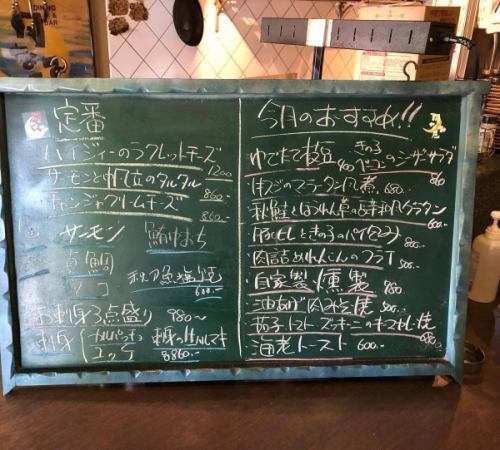 DINING
BAR
定番
パイジィーのラクレットチーズ
1200
サーモンと帆立のタルタル
860.-
チャンジャクリームチーズ
860.-
サーモン 鮪はち
真鯛
タコ 秋刀魚塩焼
600.-
お刺身3点盛り 980〜
刺身 カルパッチョ 刺身の仕ルしても
ユッケ 860.-
今月のおすすめ!!
ゆでたて枝豆 400
きのこ ベーコンのシーザーサラダ 860
マーラータン風煮 680.-
秋鮭とほうれん草の グラタン 600.-
豚 しときのこのパイ包み
肉詰めれんこんのフライ 500.-
自家製燻製 860
油あげ肉みそ焼 500.-
茄子トマトズッキーニの チーズ焼 680.-
海老トースト 600.-